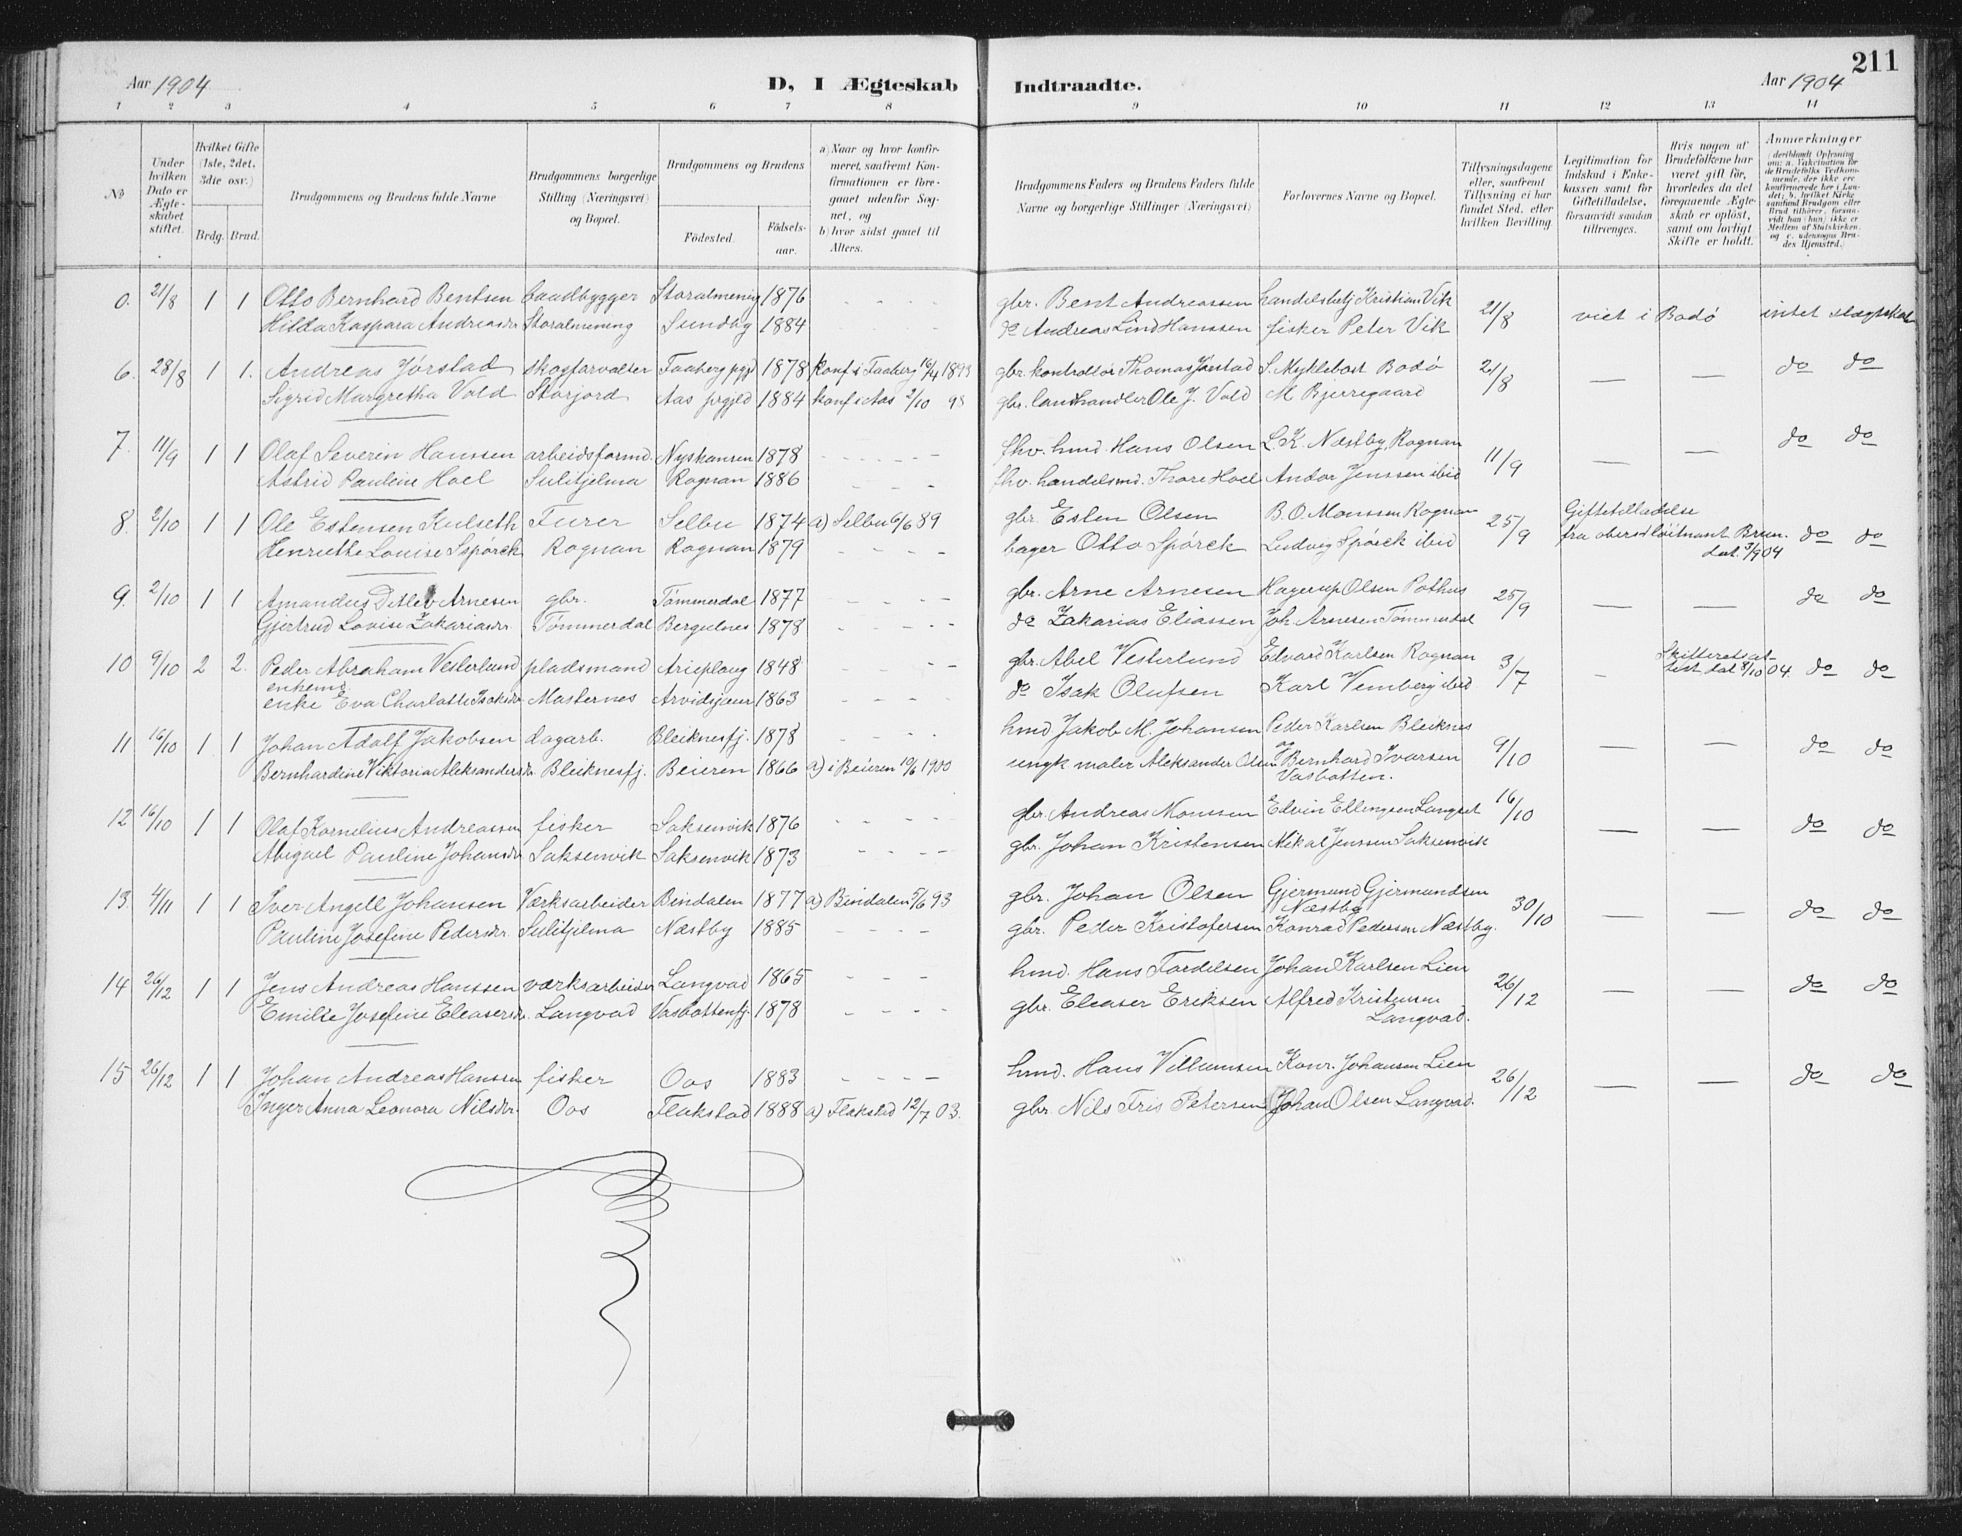 211
Aar 1904 D, I Ægteskab Indtraadte. Aar 1904
1 2 3 4 5 6 7 8 9 10 11 12 13 14
№
Under hvilken Dato er Ægteskabet stiftet.
Hvilket Gifte (1ste, 2det, 3die osv.)
Brdg. Brud.
Brudgommens og Brudens fulde Navne
Brudgommens borgerlige Stilling (Næringsvei) og Bopæl.
Brudgommens og Brudens
Fødested. Fødselsaar.
a) Naar og hvor konfirmeret, saafremt Konfirmationen er foregaaet udenfor Sognet, og
b) hvor sidst gaaet til Alters.
Brudgommens Faders og Brudens Faders fulde Navne og borgerlige Stillinger (Næringsvei)
Forlovernes Navne og Bopæl.
Tillysningsdagene eller, saafremt Tillysning ei har fundet Sted, efter hvilken Bevilling.
Legitimation for Indskud i Enkekassen samt for Giftetilladelse, forsaavidt saadan tiltrænges.
Hvis nogen af Brudefolkene har været gift før, hvorledes da det foregaaende Ægteskab er opløst, samt om lovligt Skifte er holdt.
Anmerkninger (deriblandt Oplysning om: a. Vakcination for de Brudefolks Vedkommende, der ikke ere konfirmerede her i Landet; b. hvilket Kirkesamfund Brudgom eller Brud tilhører, forsaavidt han (hun) ikke er Medlem af Statskirken, og c. udensogns Brudes Hjemsted.)
0. 21/8 1 1 Otto Bernhard Bentsen baadbygger Storalmenig 1876 - - - - gbr. Bent Andreassen handelsbetj Kristian Vik 21/8 viet i Bodø intet slægtskab
Hilda Kaspara Andreasdr Storalmening Sundby 1884 - - - - do Andreas Lind Hanssen fisker Peter Vik
6. 28/8 1 1. Andreas Jørstad skogforvalter Faaberg pgj 1878 konf i Faaberg 16/4 1893 gbr. kontrollør Thomas Jørstad S. Myklebost Bodø 21/8 — — do do
Sigrid Margretha Vold Storjord Aas prgjld 1884 konf i Aas 2/10 98 gbr. landhandler Ole J. Vold M Bjerregaard
7. 11/9 1 1 Olaf Severin Hanssen arbeidsformd. Nyskansen 1878 - - - - fhv. hmd Hans Olsen L. K. Næstby Rognan 11/9 — — do do
Astrid Pauline Hoel Sulitjelma Rognan 1886 - - - fhv. handelsmd. Thore Hoel Andor Jenssen ibid
8. 2/10 1 1 Ole Estensen Kulseth Furer Selbu 1874 a) Selbu 6/6 89 gbr. Esten Olsen B. O. Monssen Rognan 25/9 Giftetilladelse
Henriette Louise Spørck Rognan Rognan 1879 - - - - bager Otto Spørck Ludvig Spørck ibid fra oberstløitnant Bruun. dat. 3/9 04 do do
9. 2/10 1 1 Amandus Detlev Arnesen gbr. Tømmerdal 1877 - - - - gbr. Arne Arnesen Hagerup Olsen Pothus 25/9 — — do do
Gjertrud Lovise Zakariasdr Tømmerdal Bergulnes 1878 - - - - do Zakarias Eliassen Joh Arnesen Tømmerdal
10 9/10 2 2. Peder Abraham Vesterlund pladsmand Arieploug 1848 - - - - gbr. Abel Vesterlund Edvard Karlsen Rognan 3/7 - Skifteretsattest dat 8/10 04. do do
enkemd
enke Eva Charlotte Isaksdr Mosternes Arvidsjaur 1863 - - - - do Isak Olufsen Karl Vemberg ibid
11 16/10 1 1 Johan Adolf Jakobsen dagarb. Bleiknesfj. 1878 - - - - hmd Jakob M. Johansen Peder Karlsen Bleiknes 9/10 — — do do
Bernhardine Viktoria Aleksandersdr. Bleiknesfj. Beieren 1866 a) i Beieren 10/6 1900 ungk maler Aleksander Olsen og Bernhard Ivarsen Vasbotten.
12 16/10 1 1 Olaf Kornelius Andreassen fisker Saksenvik 1876 - - - - gbr. Andreas Monssen Edvin Ellingsen Langset 16/10 — — do do
Abigael Pauline Johansdr Saksenvik Saksenvik 1873 - - - - gbr. Johan Kristensen Mikal Jenssen Saksenvik
13. 4/11 1 1 Iver Angell Johansen Værksarbeider Bindalen 1877 a) Bindalen 5/6 93 gbr. Johan Olsen Gjermund Gjermundsen Næstby 30/10 — — do do
Pauline Josefine Pedersdr. Sulitjelma Næstby 1885 - - - - gbr. Peder Kristofersen Konrad Pedersen Næstby.
14 26/12 1 1 Jens Andreas Hanssen værksarbeider Langvad 1865 - - - - hmd. Hans Tordelsen Johan Karlsen Lien 26/12 — — do do
Emilie Josefine Eleasersdr. Langvad Vasbottenfj. 1878 - - - - gbr. Eleaser Eriksen Alfred Kristensen Langvad.
15 26/12 1 1 Johan Andreas Hanssen fisker Oos 1883 - - - - hmd. Hans Villumsen Konr. Johansen Lien 26/12 — — do do
Inger Anna Leonora Nilsdr. Oos Flakstad 1888 a) Flakstad 12/7 03. gbr. Nils Fris Petersen Johan Olsen Langvad.